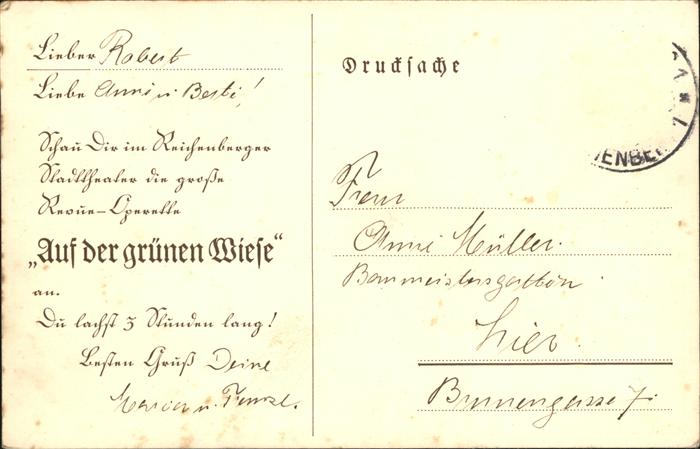 Lieber Robert
Liebe Anni u. Berti!
Schau Dir im Reichenberger
Stadttheater die große
Revue-Operette
„Auf der grünen Wiese“
an.
Du lachst 3 Stunden lang!
Besten Gruß Deine
u.
Drucksache
Frau
Anni Müller.
Baumeistersgattin
hier.
Brunnengasse 7.